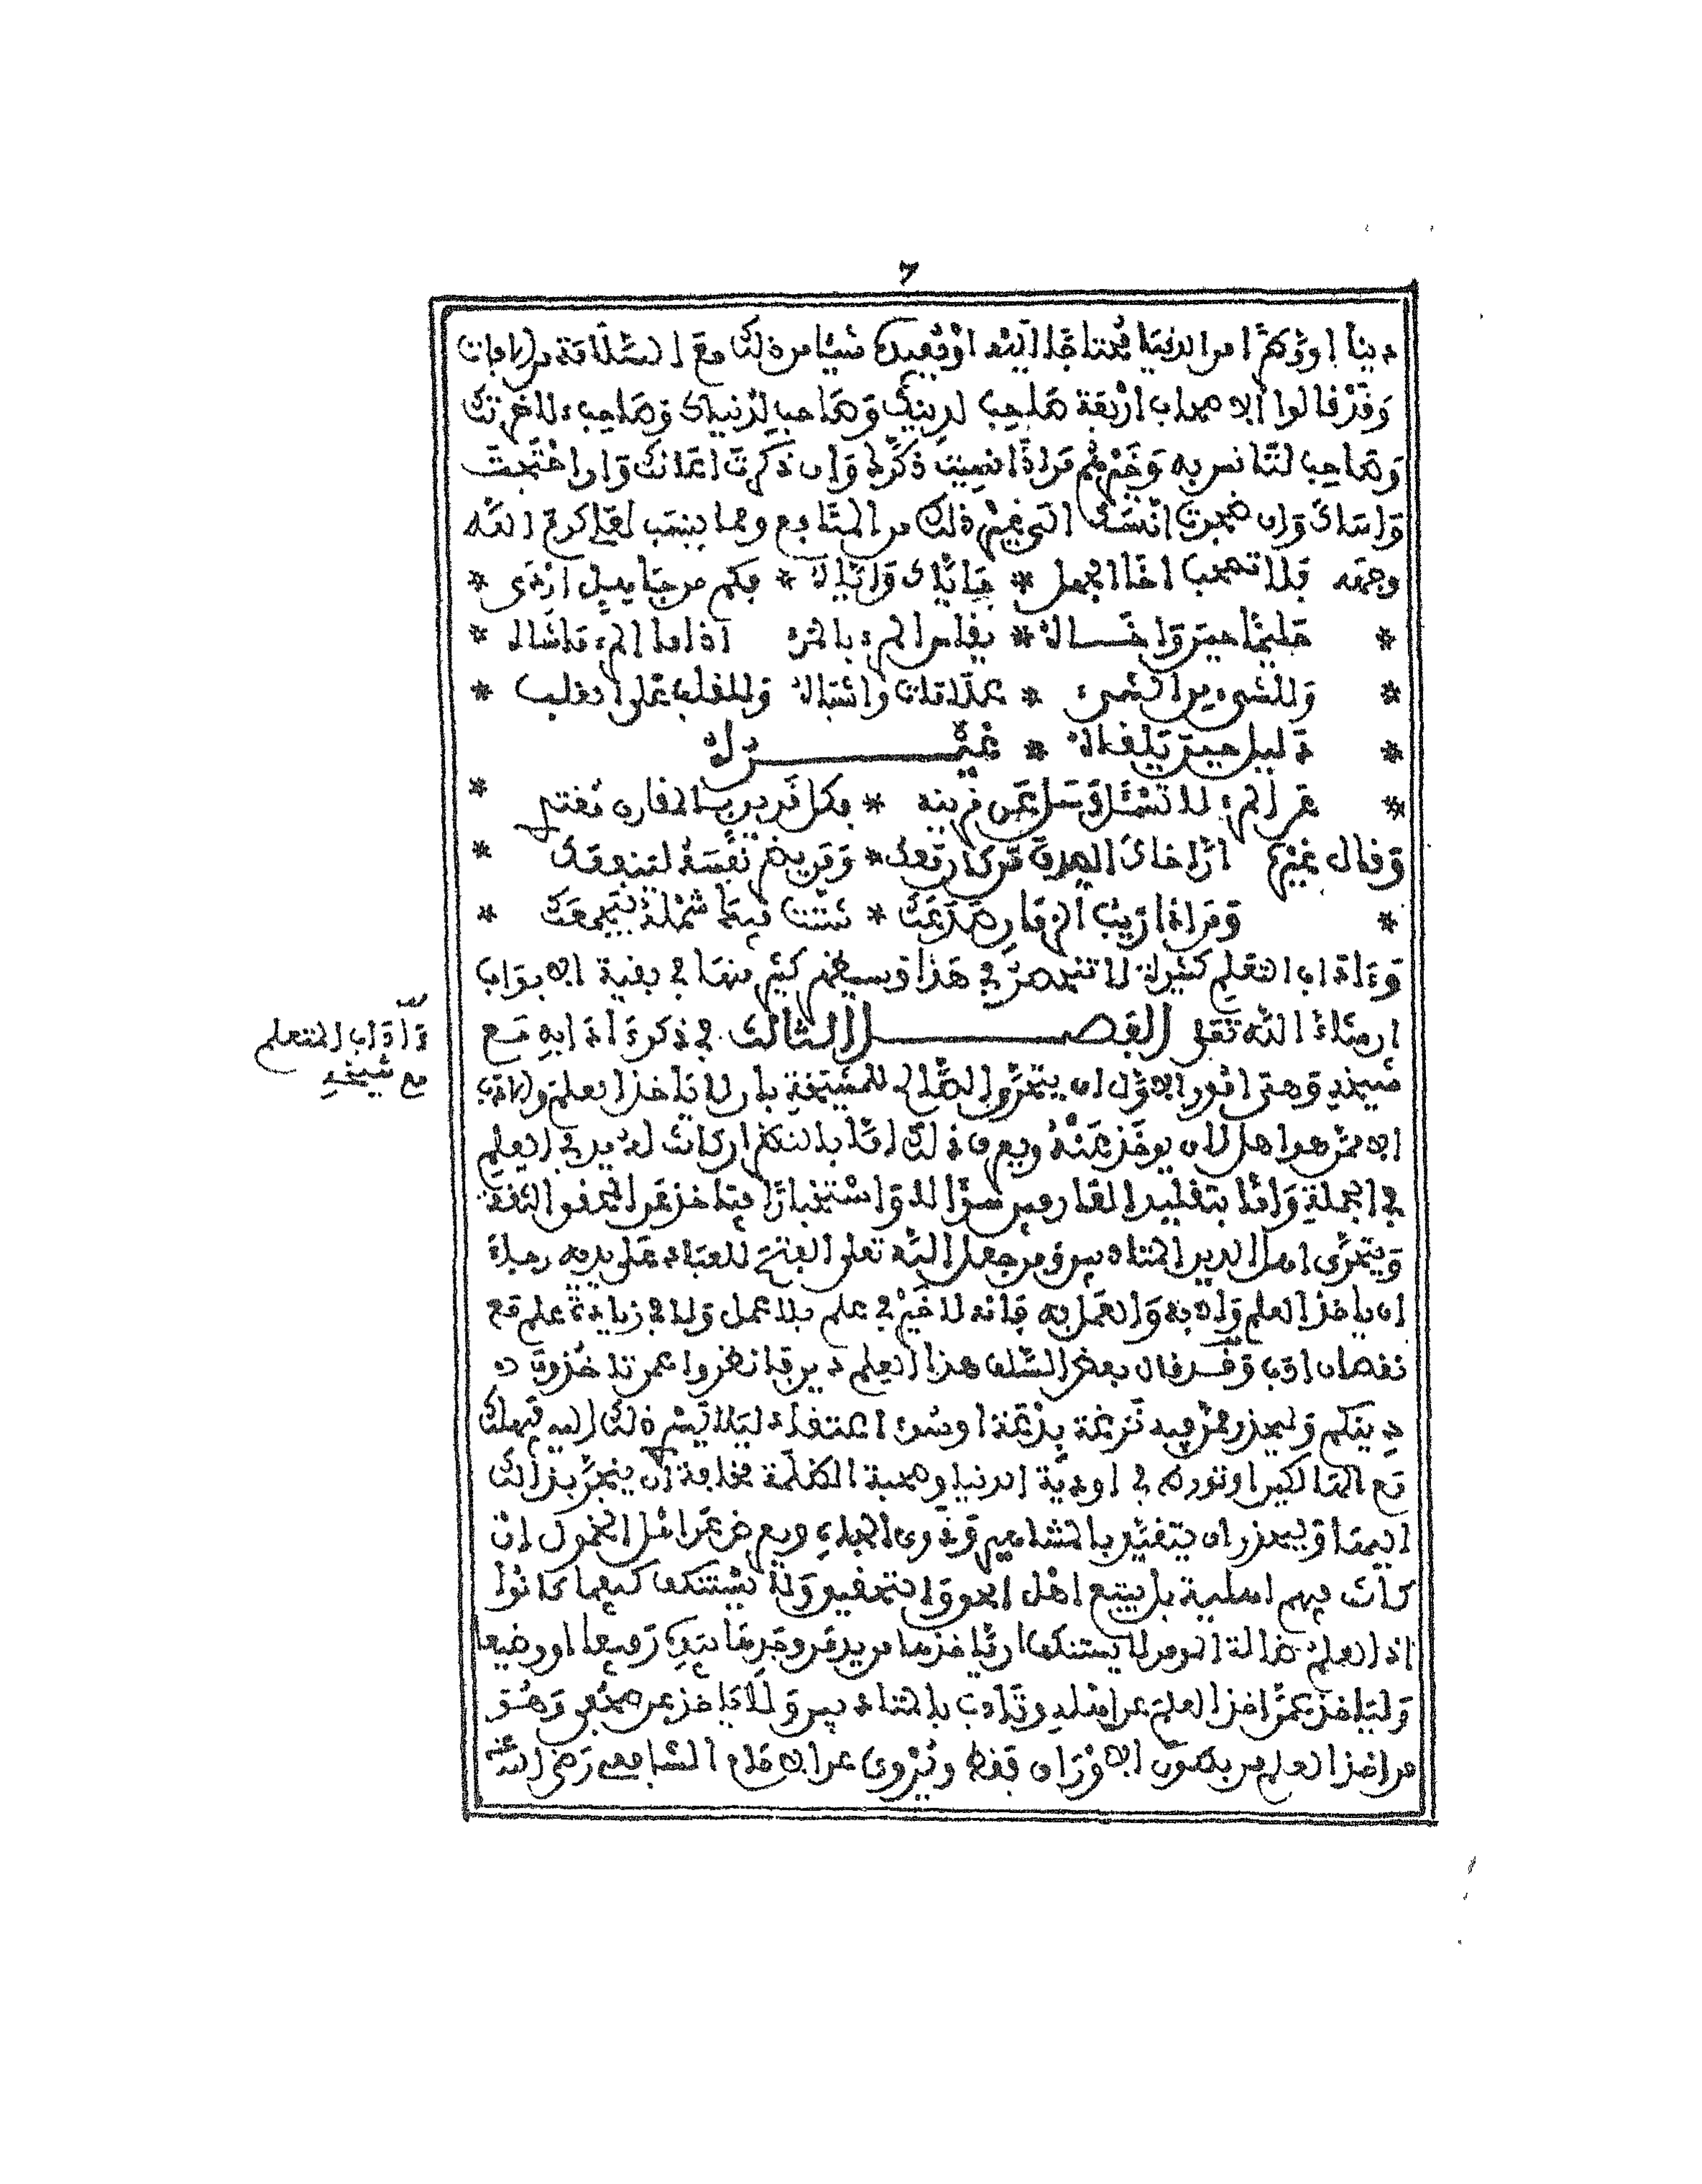 7
دينا او وكرا من الدنيا محتاجا اليه او يفيدك شيئا من ذلك مع السلامة من الافات
وقد قالوا الاصحاب اربعة صاحب لدينك وصاحب لدنياك وصاحب ءلاخرتك
وصاحب لتانس به وخيرهم من اذا نسيت ذكرك وان ذكرت اعانك وان احتجت
واساك وان ضجرت انسك الى غير ذلك من المنافع ومما ينسب لعلي كرم الله
وجهه فلا تصحب اخا الجهل * فاياك واياه * فكم من جاهل اردى *
* حليما حين واخاه * يقاس المرء بالمرء اذا ما المرء ماشاه *
* وللشيء من الشيء * علامات واشباه وللقلب على القلب *
* دليل حين يلقاه * غيره
* عن المرء لا تسئل وسل عن قرينه * فكل قرين بالمقارن يقتدي *
وقال غيره ان اخاك الصدق من كان معك * ومن يضر نفسه لينفعك *
* ومن اذا ريب الزمان صدعك * شتت فيك شمله ليجمعك *
وءاداب التعلم كثيرة لا تنحصر في هذا وسيظهر كثير منها في بقية الابواب
ان شاء الله تعلى الفصل الثالث في ذكر ءادابه مع
شيخه وهي امور الاول ان يتحرى الصالح للمشيخة بان لا ياخذ العلم والادب
الا ممن هو اهل لان يوخذ عنه ويعرف ذلك اما بالنظر ان كانت له يد في العلم
في الجملة واما بتقليد العارفين سؤالا واستخبارا فياخذ عن المحقق الثقة
ويتحرى اهل الدين المتادبين ومن جعل الله تعلى الفتح للعباد على يديه رجاء
ان ياخذ العلم والادب والعمل به فانه لا خير في علم بلا عمل ولا في زيادة علم مع
نقصان ادب وقد قال بعض السلف هذا العلم دين فانظروا عمن تاخذون
دينكم وليحذر ممن فيه نزغة بدعة او سوء اعتقاد ليلا يسر ذلك اليه فيهلك
مع الهالكين او تورط في اودية الدنيا وصحبة الظلمة مخافة ان ينجر بذلك
اليها وليحذر ان يتقيد بالمشاهير وذوي الجاه ويعرض عن اهل الخمول ان
كانت فيهم اهلية بل يتبع اهل الحق والتحقيق ولا يستنكف كيفما كانوا
اذ العلم ضالة المومن لا يستنكف ان ياخذها من يد من وجدها بيده رفيعا او وضيعا
ولياخذ عمن اخذ العلم عن اهله وتادب بالمتادبين ولا ياخذ عن صحفي وهو
من اخذ العلم من بطون الاوراق فقط ويروى عن الامام الشافعي رضي الله عنه
وءاداب المتعلم
مع شيخه